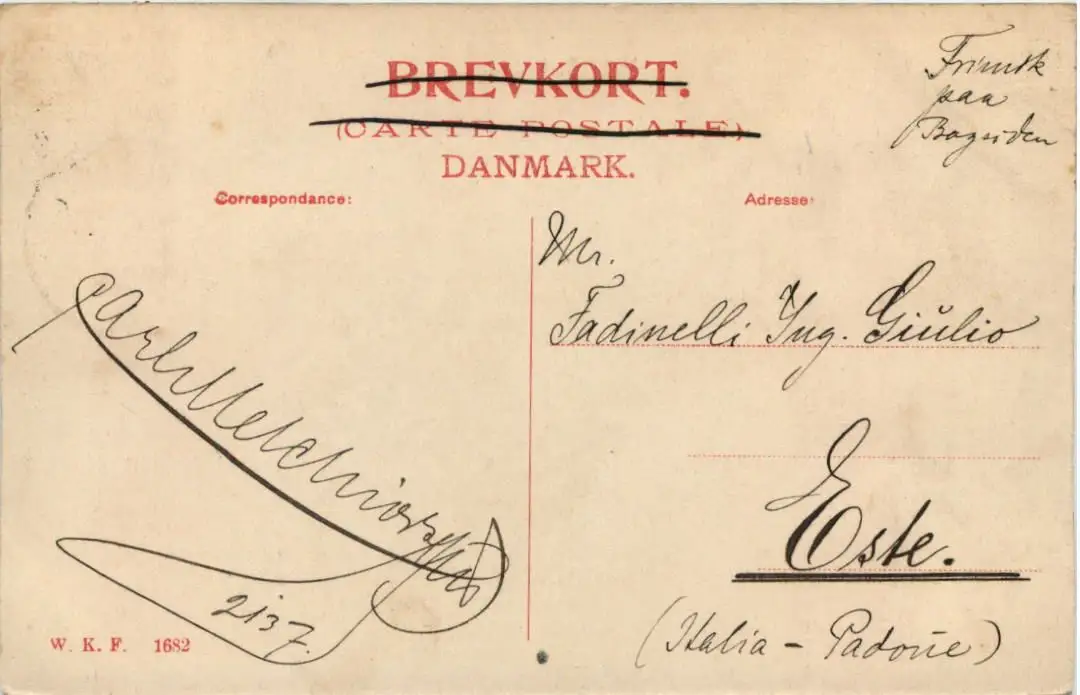 BREVKORT.
(CARTE POSTALE)
DANMARK.
Frimrk
paa
Bagsiden
Correspondance:
Adresse:
Mr.
Fadinelli Ing. Giulio
Este.
(Italia - Padoue)
Carl Melchiorsen
2137.
W. K. F. 1682